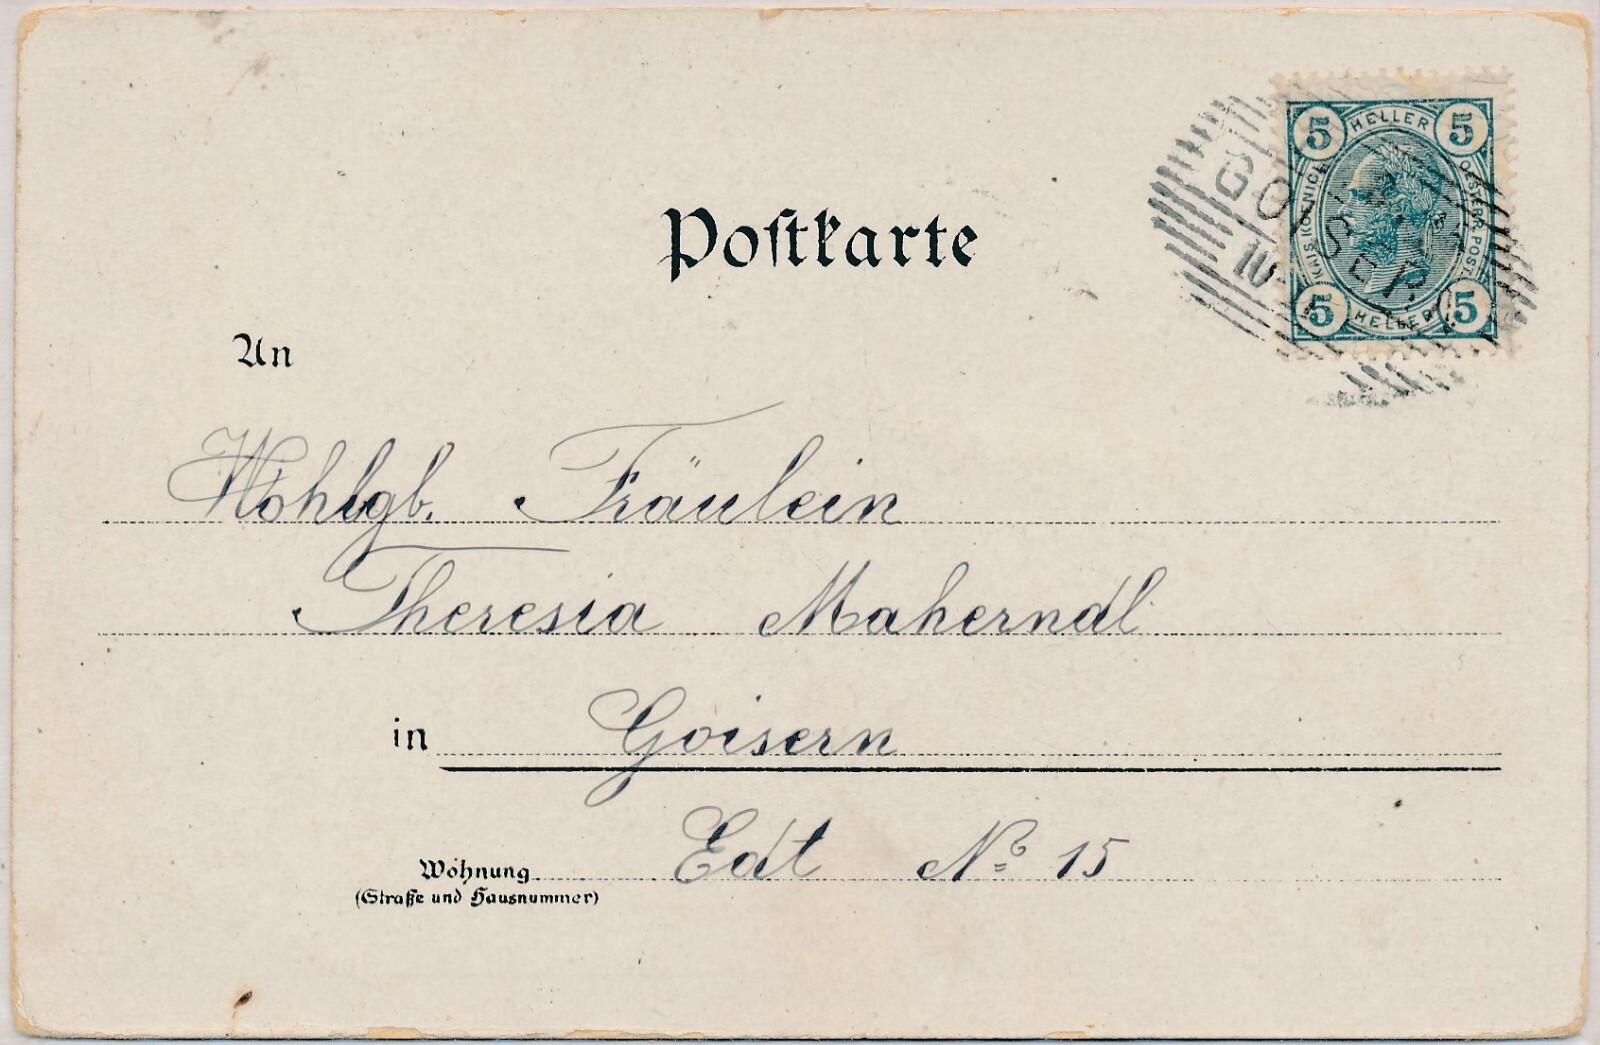 Postkarte
5 HELLER 5
KAIS. KOENIGL.
OESTERR. POST.
5 HELLER 5
An
Wohlgb. Fräulein
Theresia Maherndl
in Goisern
Wohnung Edt No 15
(Straße und Hausnummer)